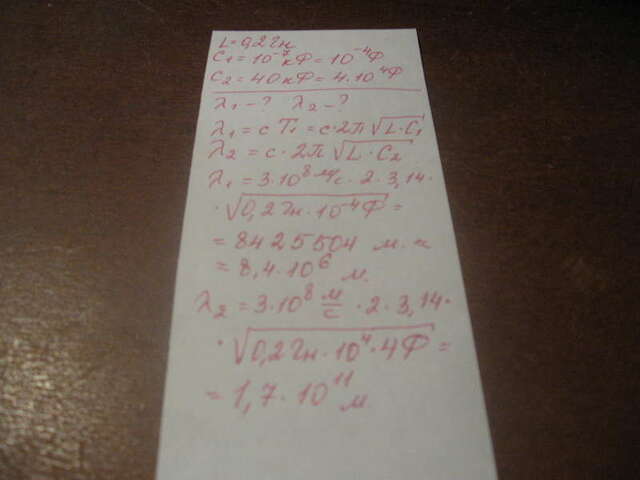 L = 0,2 Гн
C₁ = 10⁻⁷ кФ = 10⁻⁴ Ф
C₂ = 40 кФ = 4·10⁴ Ф
λ₁ - ? λ₂ - ?
λ₁ = c T₁ = c·2π √L·C₁
λ₂ = c · 2π √L · C₂
λ₁ = 3·10⁸ м/с · 2 · 3,14 ·
· √0,2 Гн · 10⁻⁴ Ф =
= 8425504 м. ≈
= 8,4 · 10⁶ м.
λ₂ = 3·10⁸ м/с · 2 · 3,14 ·
· √0,2 Гн · 10⁴ · 4 Ф =
= 1,7 · 10¹¹ м.